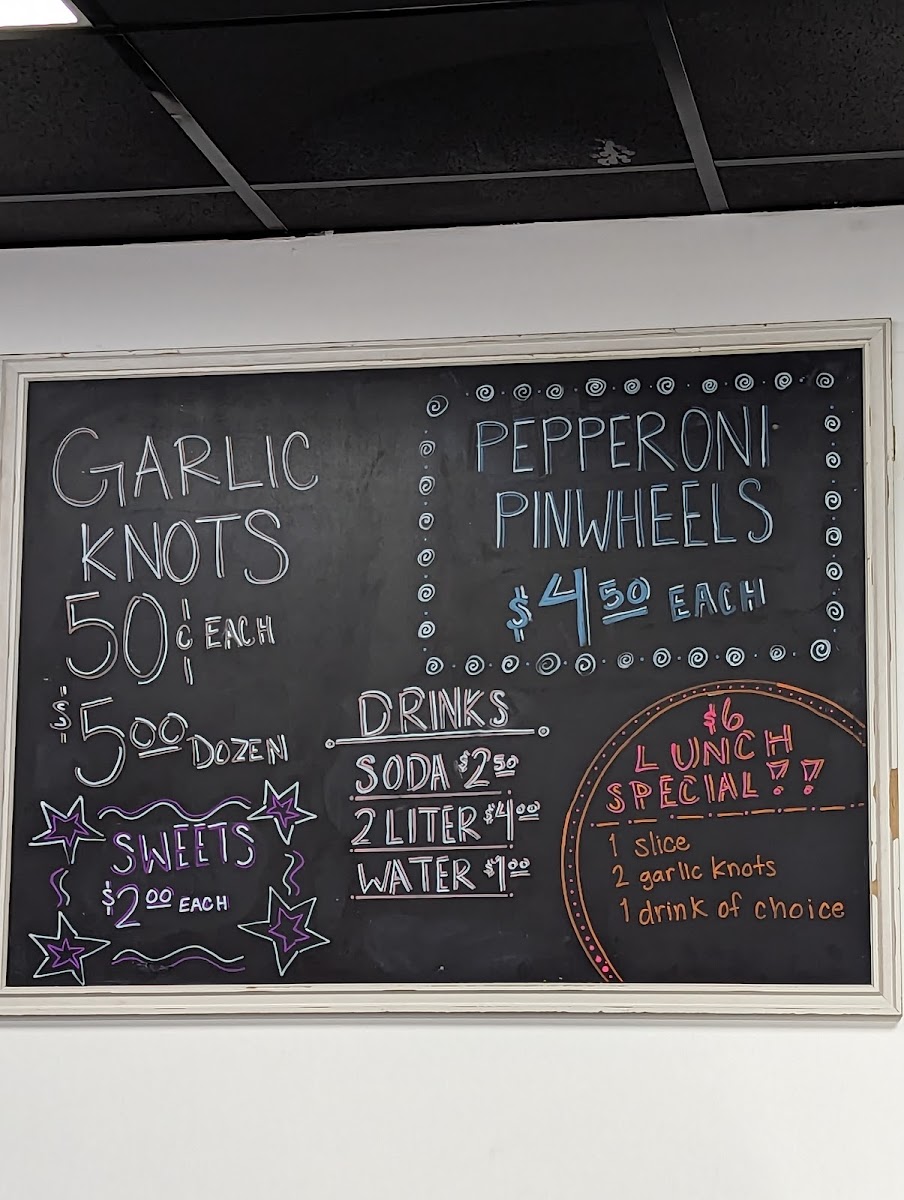 GARLIC
KNOTS
50¢ EACH
$5.00 DOZEN
SWEETS
$2.00 EACH
PEPPERONI
PINWHEELS
$4.50 EACH
DRINKS
SODA $2.50
2 LITER $4.00
WATER $1.00
$6
LUNCH
SPECIAL!!
1 slice
2 garlic knots
1 drink of choice